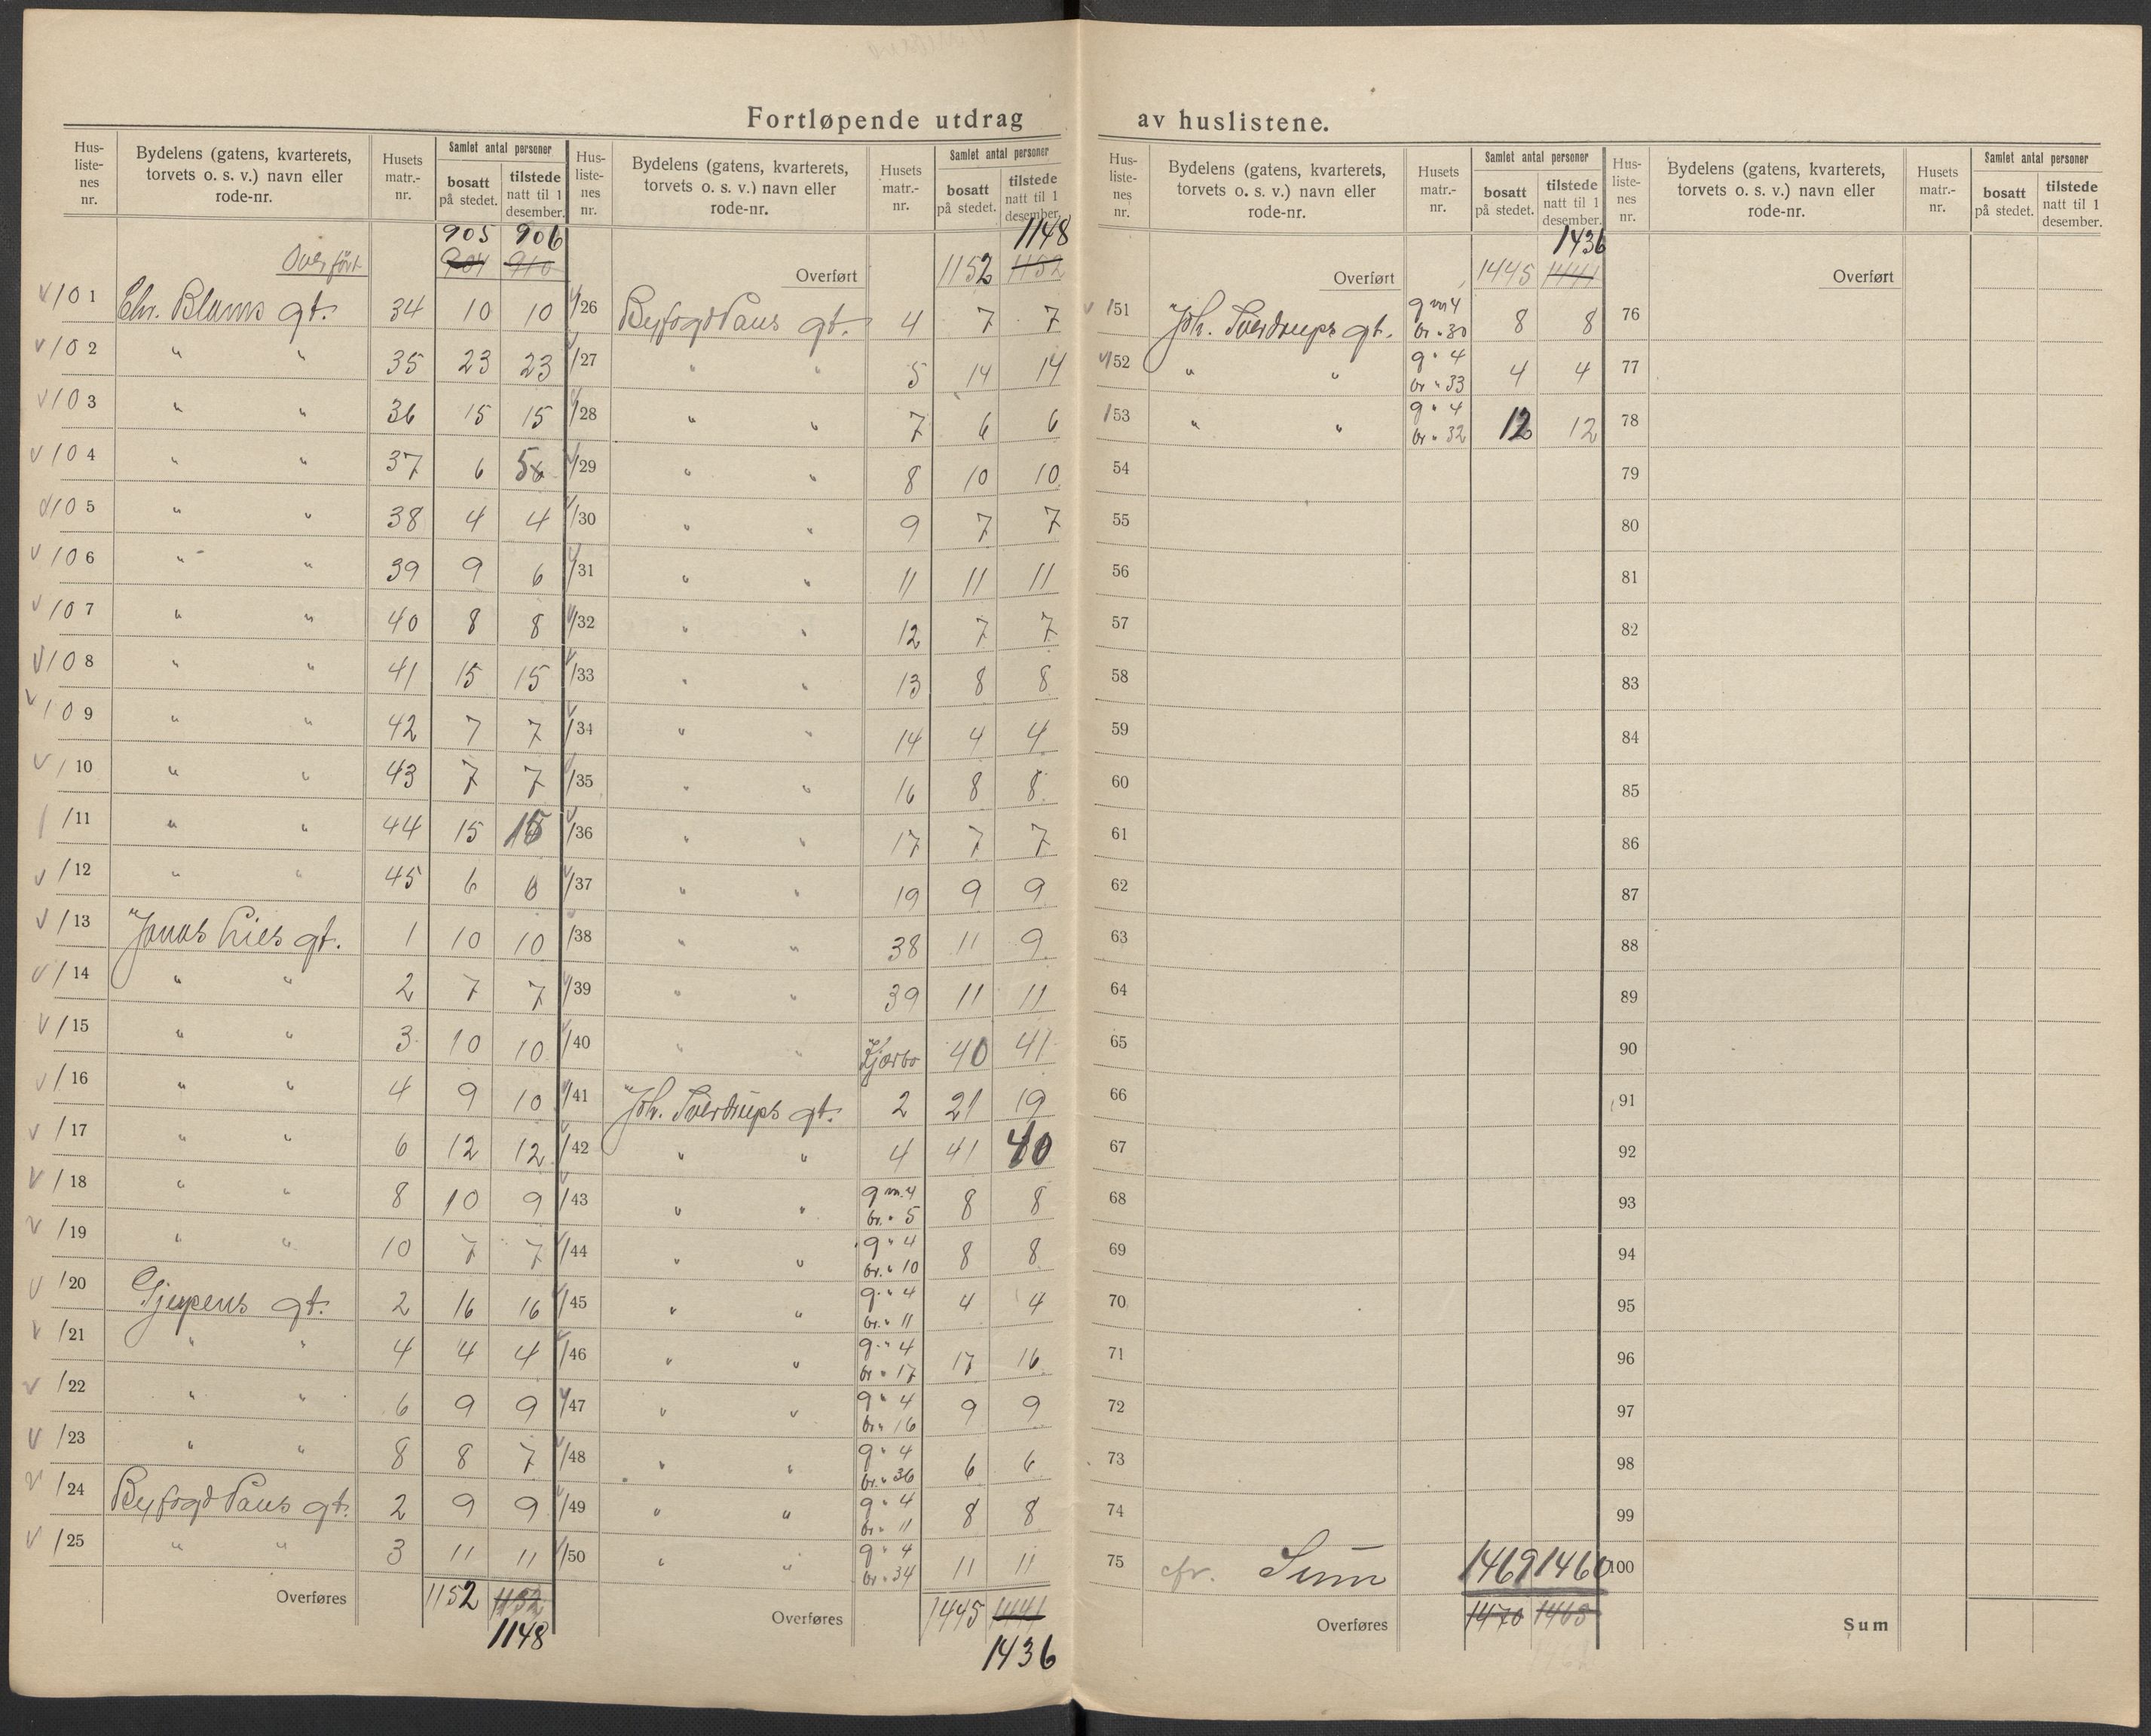 Fortløpende utdrag av huslistene.
Hus-liste-nes nr. | Bydelens (gatens, kvarterets, torvets o. s. v.) navn eller rode-nr. | Husets matr.-nr. | Samlet antal personer bosatt på stedet. | tilstede natt til 1 desember.
905 906
Overført 904 910
101 Chr. Bloms gt. 34 10 10
102 " " 35 23 23
103 " " 36 15 15
104 " " 37 6 5
105 " " 38 4 4
106 " " 39 9 6
107 " " 40 8 8
108 " " 41 15 15
109 " " 42 7 7
110 " " 43 7 7
111 " " 44 15 15
112 " " 45 6 6
113 Jonas Lies gt. 1 10 10
114 " " 2 7 7
115 " " 3 10 10
116 " " 4 9 10
117 " " 6 12 12
118 " " 8 10 9
119 " " 10 7 7
120 Gjeypens gt. 2 16 16
121 " " 4 4 4
122 " " 6 9 9
123 " " 8 8 7
124 Byfogd Paus gt. 2 9 9
125 " " 3 11 11
Overføres 1152 1152
1148
Hus-liste-nes nr. | Bydelens (gatens, kvarterets, torvets o. s. v.) navn eller rode-nr. | Husets matr.-nr. | Samlet antal personer bosatt på stedet. | tilstede natt til 1 desember.
1148
Overført 1152 1152
126 Byfogd Paus gt. 4 7 7
127 " " 5 14 14
128 " " 7 6 6
129 " " 8 10 10
130 " " 9 7 7
131 " " 11 11 11
132 " " 12 7 7
133 " " 13 8 8
134 " " 14 4 4
135 " " 16 8 8
136 " " 17 7 7
137 " " 19 9 9
138 " " 38 11 9
139 " " 39 11 11
140 " " Kjørbo 40 41
141 Joh. Sverdrups gt. 2 21 19
142 " " 4 41 40
143 " " g nr. 4 br. " 5 8 8
144 " " g " 4 br. " 10 8 8
145 " " g " 4 br. " 11 4 4
146 " " g " 4 br " 17 17 16
147 " " g " 4 br " 16 9 9
148 " " g " 4 br. " 36 6 6
149 " " g " 4 br " 11 8 8
150 " " g " 4 br " 34 11 11
Overføres 1445 1441
1436
Hus-liste-nes nr. | Bydelens (gatens, kvarterets, torvets o. s. v.) navn eller rode-nr. | Husets matr.-nr. | Samlet antal personer bosatt på stedet. | tilstede natt til 1 desember.
1436
Overført 1445 1441
151 Joh. Sverdrups gt. g nr 4 br " 30 8 8
152 " " g " 4 br " 33 4 4
153 " " g " 4 br " 32 12 12
54
55
56
57
58
59
60
61
62
63
64
65
66
67
68
69
70
71
72
73
74
75 cfr. Sum 1469 1460
Overføres 1470 1465
Hus-liste-nes nr. | Bydelens (gatens, kvarterets, torvets o. s. v.) navn eller rode-nr. | Husets matr.-nr. | Samlet antal personer bosatt på stedet. | tilstede natt til 1 desember.
Overført
76
77
78
79
80
81
82
83
84
85
86
87
88
89
90
91
92
93
94
95
96
97
98
99
100
Sum